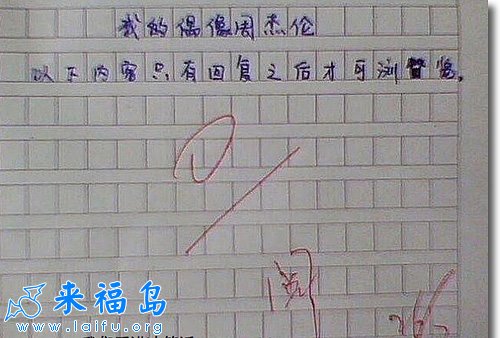 我的偶像周杰伦
以下内容只有回复之后才可浏览。
阅
来福岛
www.laifu.org